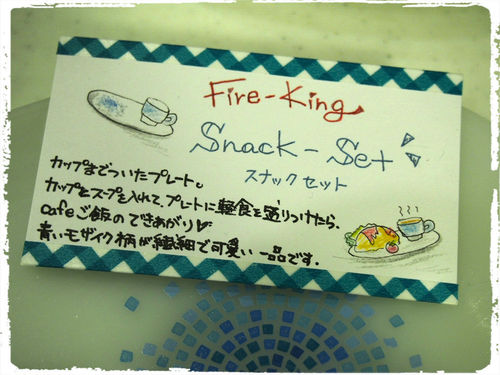 Fire-King
Snack-Set
スナックセット
カップまでついたプレート。
カップにスープを入れて、プレートに軽食を盛りつけたら、
cafeご飯のできあがり♥
青いモザイク柄が繊細で可愛い一品です。